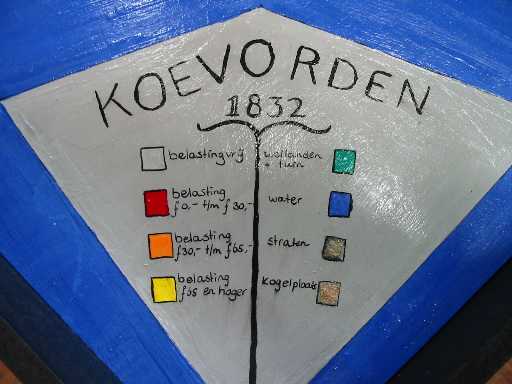 KOEVORDEN
1832
belastingvrij
belasting
f 0,- t/m f 30,-
belasting
f30,- t/m f65,-
belasting
f65 en hoger
weilanden
+ tuin
water
straten
Kogelplaats